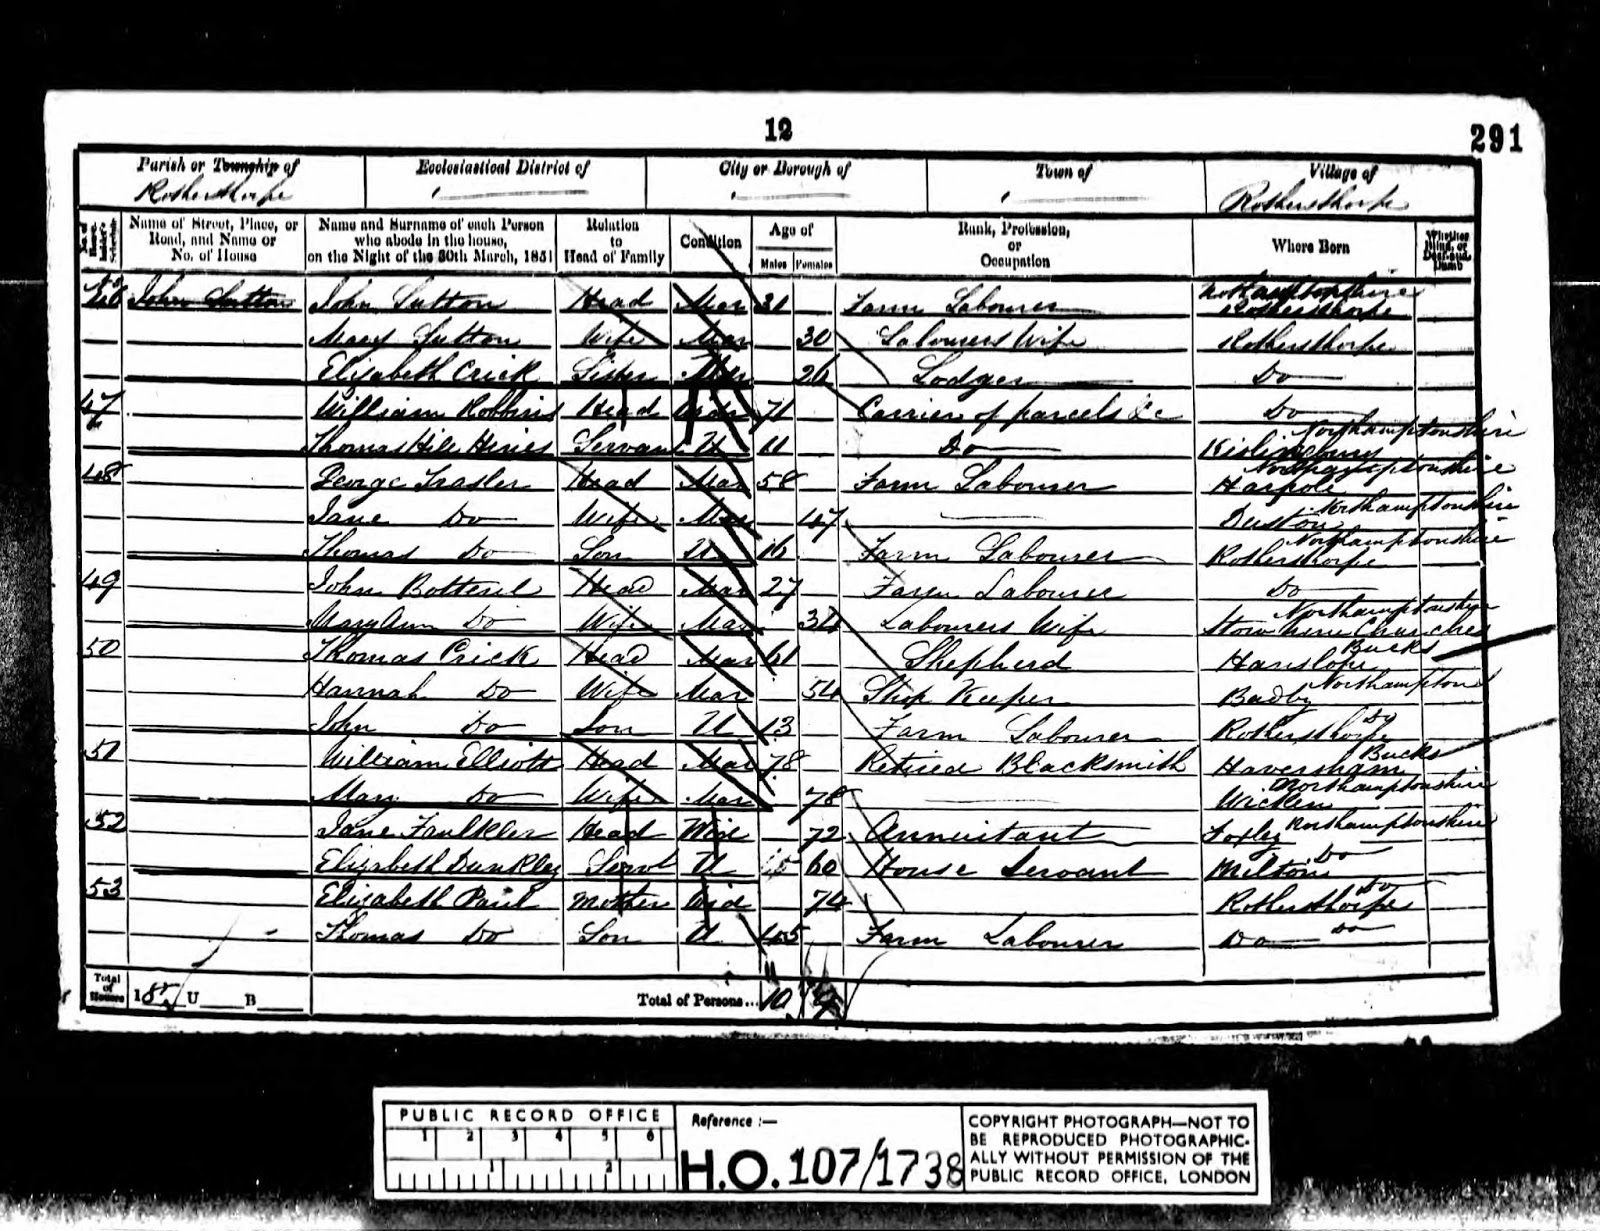 12
291
Parish or Township of Ecclesiastical District of City or Borough of Town of Village of
Rothersthorpe Rothersthorpe
No. of House-holder's Schedule Name of Street, Place, or Road, and Name or No. of House Name and Surname of each Person who abode in the house, on the Night of the 30th March, 1851 Relation to Head of Family Condition Age of Males Females Rank, Profession, or Occupation Where Born Whether Blind, or Deaf-and-Dumb
46 John Sutton John Sutton Head Mar 31 Farm Labourer Northamptonshire Rothersthorpe
Mary Sutton Wife Mar 30 Labourers Wife Rothersthorpe
Elizabeth Crick Sister 26 Lodger Do
47 William Robbins Head 71 Carrier of parcels &c Do
Thomas Hines Servant U 11 Do Northamptonshire Kislingbury
48 George Frasler Head Mar 58 Farm Labourer Northamptonshire Harpole
Jane Do Wife Mar 47 Northamptonshire Duston
Thomas Do Son U 16 Farm Labourer Northamptonshire Rothersthorpe
49 John Botterel Head Mar 27 Farm Labourer Do
Mary Ann Do Wife Mar Labourers Wife Northamptonshire Stow Nine Churches
50 Thomas Crick Head Mar 61 Shepherd Bucks Hanslope
Hannah Do Wife Mar 54 Shop Keeper Northampton Badby
John Do Son U 13 Farm Labourer Do Rothersthorpe
51 William Elliott Head Mar 78 Retired Blacksmith Bucks Haversham
Mary Do Wife Mar 78 Northamptonshire Wicken
52 Jane Faulkler Head Wid 72 Annuitant Northamptonshire Foxley
Elizabeth Dunkley Servt U 60 House Servant Do Milton
53 Elizabeth Mother Wid 74 Do Rothersthorpe
Thomas Do Son U 45 Farm Labourer Do Do
Total of Houses I U B Total of Persons... 10
PUBLIC RECORD OFFICE
1 2 3 4 5 6
1 2
Reference :—
H.O. 107/1738
COPYRIGHT PHOTOGRAPH—NOT TO
BE REPRODUCED PHOTOGRAPHIC-
ALLY WITHOUT PERMISSION OF THE
PUBLIC RECORD OFFICE, LONDON